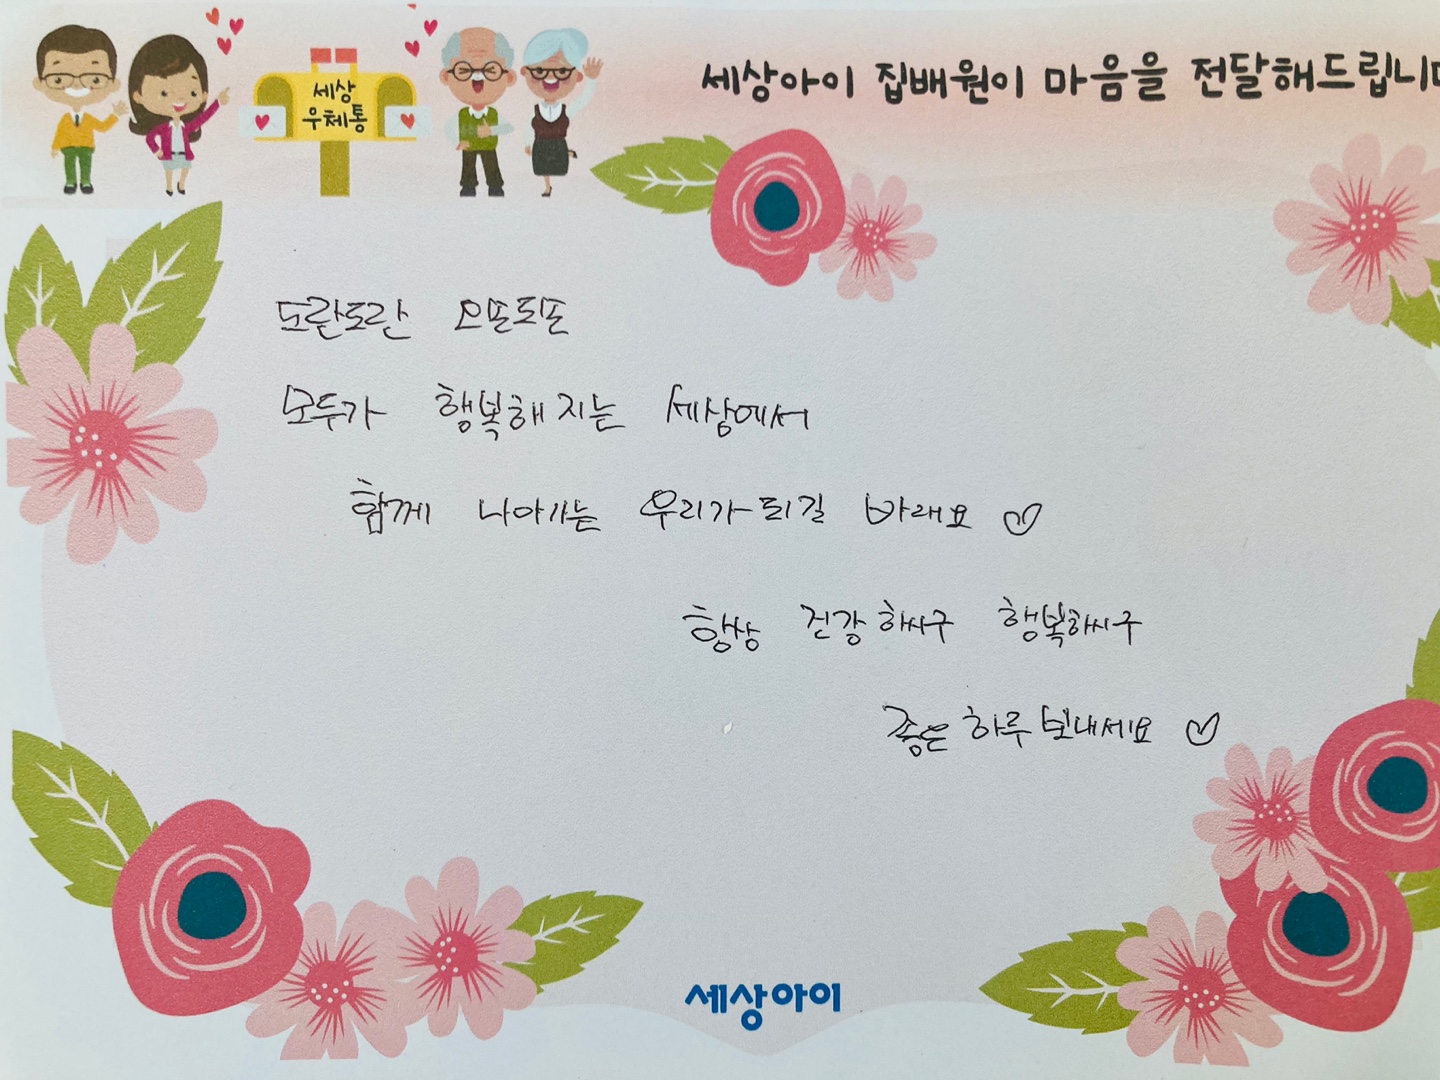 세상
우체통
세상아이 집배원이 마음을 전달해드립니다
도란도란 오또도또
모두가 행복해지는 세상에서
함께 나아가는 우리가 되길 바래요 ♡
항상 건강하시구 행복하시구
좋은 하루 보내세요 ♡
세상아이